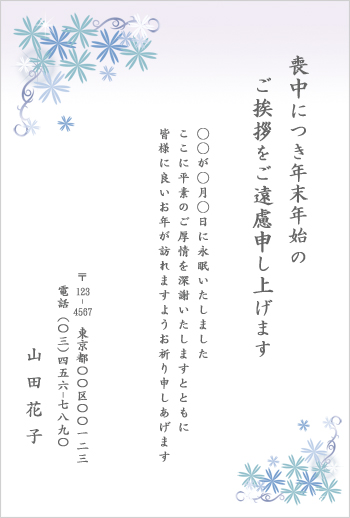 喪中につき年末年始の
ご挨拶をご遠慮申し上げます
〇〇が〇月〇日に永眠いたしました
ここに平素のご厚情を深謝いたしますとともに
皆様に良いお年が訪れますようお祈り申しあげます
〒123-4567 東京都〇〇区〇〇一二三
電話(〇三)四五六-七八九〇
山田花子